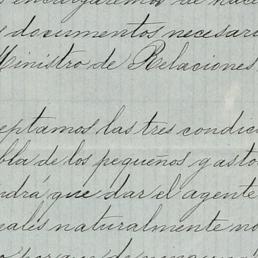 s encargaremos de hace
s documentos necesari
Ministro de Relaciones
eptamos las tres condic
bla de los pequeños gasto
ndrá que dar el agente
eales naturalmente no